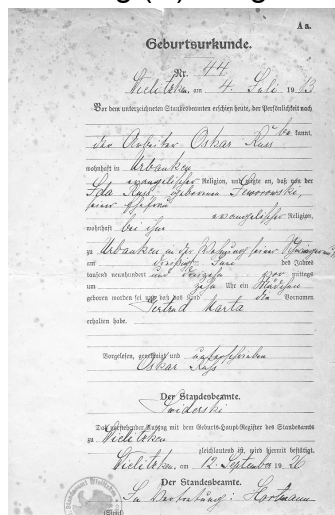 A a.
Geburtsurkunde.
Nr. 44
Wielitzken, am 4. Juli 1913
Vor dem unterzeichneten Standesbeamten erschien heute, der Persönlichkeit nach
be kannt,
der Arbeiter Oskar Russ
wohnhaft in Urbanken
evangelischer Religion, und zeigte an, daß von der
Ida Russ geborenen
seiner Ehefrau
evangelischer Religion,
wohnhaft bei ihm
zu Urbanken in der Wohnung seiner
am Juni des Jahres
tausend neunhundert und dreizehn vor mittags
um zehn Uhr ein Mädchen
geboren worden sei und daß das Kind die Vornamen
Gertrud Marta
erhalten habe.
Vorgelesen, genehmigt und unterschrieben
Oskar Russ
Der Standesbeamte.
Swiderski
Daß vorstehender Auszug mit dem Geburts-Haupt-Register des Standesamts
zu Wielitzken
gleichlautend ist, wird hiermit bestätigt.
Wielitzken, am 12. September 1926
Der Standesbeamte.
In Vertretung: Hartmann
(Siegel)